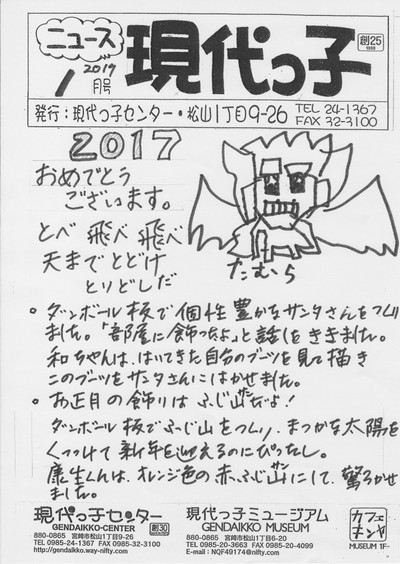 ニュース
2017
1月号
現代っ子
創25
1988
発行：現代っ子センター・松山1丁目9-26
TEL 24-1367
FAX 32-3100
2017
おめでとう
ございます。
とべ 飛べ 飛べ
天までとどけ
とりどしだ
たむら
。ダンボール板で個性豊かなサンタさんをつくり
ました。「部屋に飾ったよ」と話しをききました。
和ちゃんは、はいてきた自分のブーツを見て描き
このブーツをサンタさんにはかせました。
。お正月の飾りはふじ山だよ!
ダンボール板でふじ山をつくり、まっかな太陽を
くっつけて新年を迎えるのにぴったし。
康生くんは、オレンジ色の赤ふじ山にして、驚ろかせ
ました。
現代っ子センター
GENDAIKKO-CENTER
創30
880-0865 宮崎市松山1丁目9-26
TEL 0985-24-1367 FAX 0985-32-3100
http://gendaikko.way-nifty.com/
現代っ子ミュージアム
GENDAIKKO MUSEUM
880-0865 宮崎市松山1丁目6-20
TEL 0985-20-3663 FAX 0985-20-4099
E-mail : NQF49174@nifty.com
カフェ
MUSEUM 1F